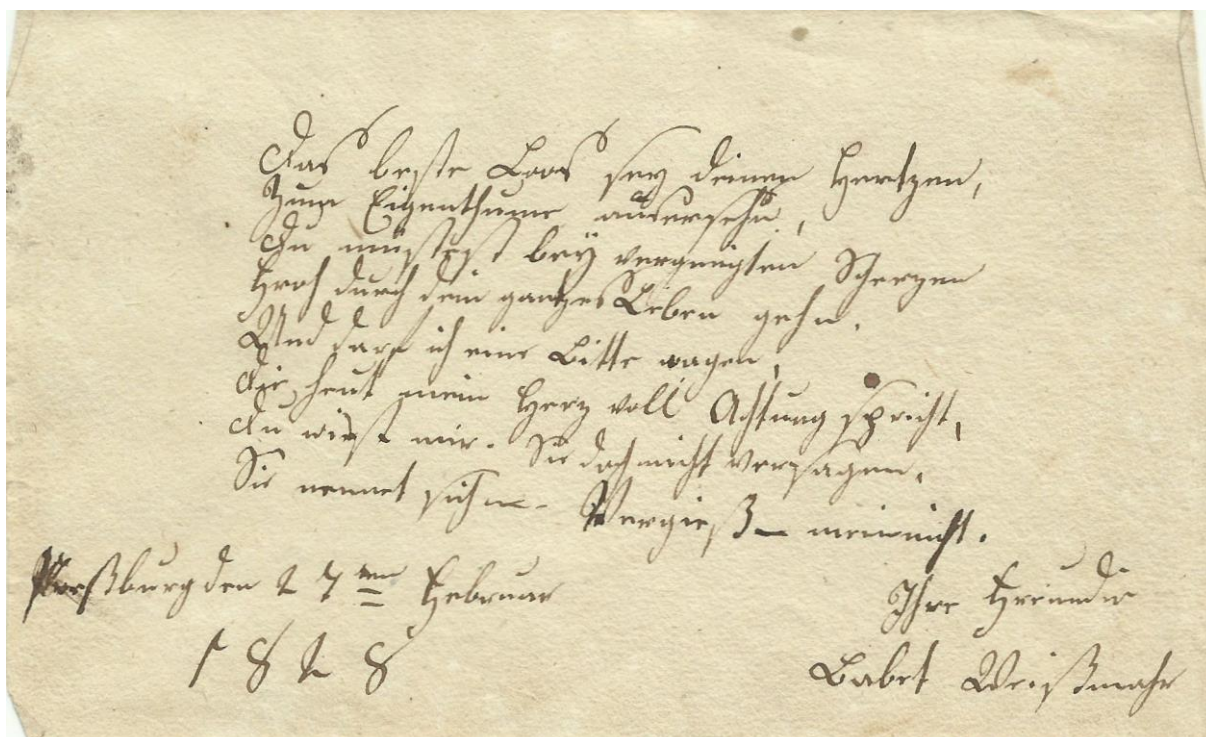 Das beste Loos sey deinen Hertzen,
Zum Eigenthume ausersehn,
Du müssest bey vergnügten Scherzen
Froh durch dein gantzes Leben gehn.
Und darf ich eine Bitte wagen,
Die heut mein Herz voll Achtung spricht,
Du wirst mir. Sie doch nicht versagen,
Sie nennet sich - Vergieß- meinnicht.
Preßburg den 27ten Februar
1828
Ihre Freundin
Babet Weißmahr